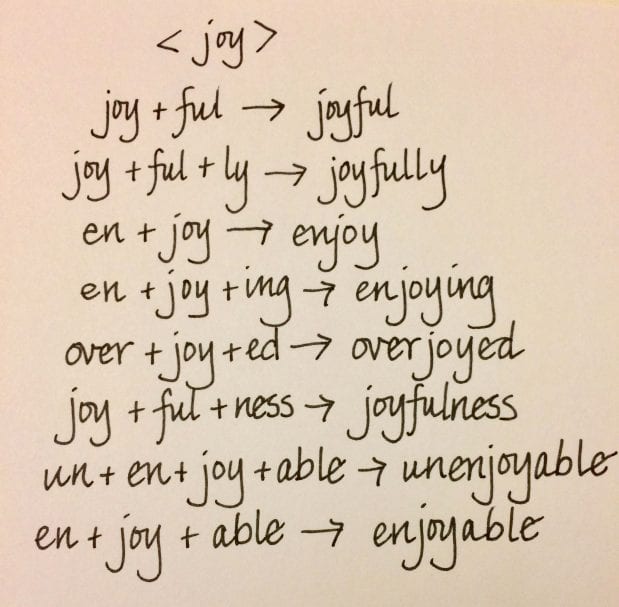 < joy >
joy + ful → joyful
joy + ful + ly → joyfully
en + joy → enjoy
en + joy + ing → enjoying
over + joy + ed → overjoyed
joy + ful + ness → joyfulness
un + en + joy + able → unenjoyable
en + joy + able → enjoyable